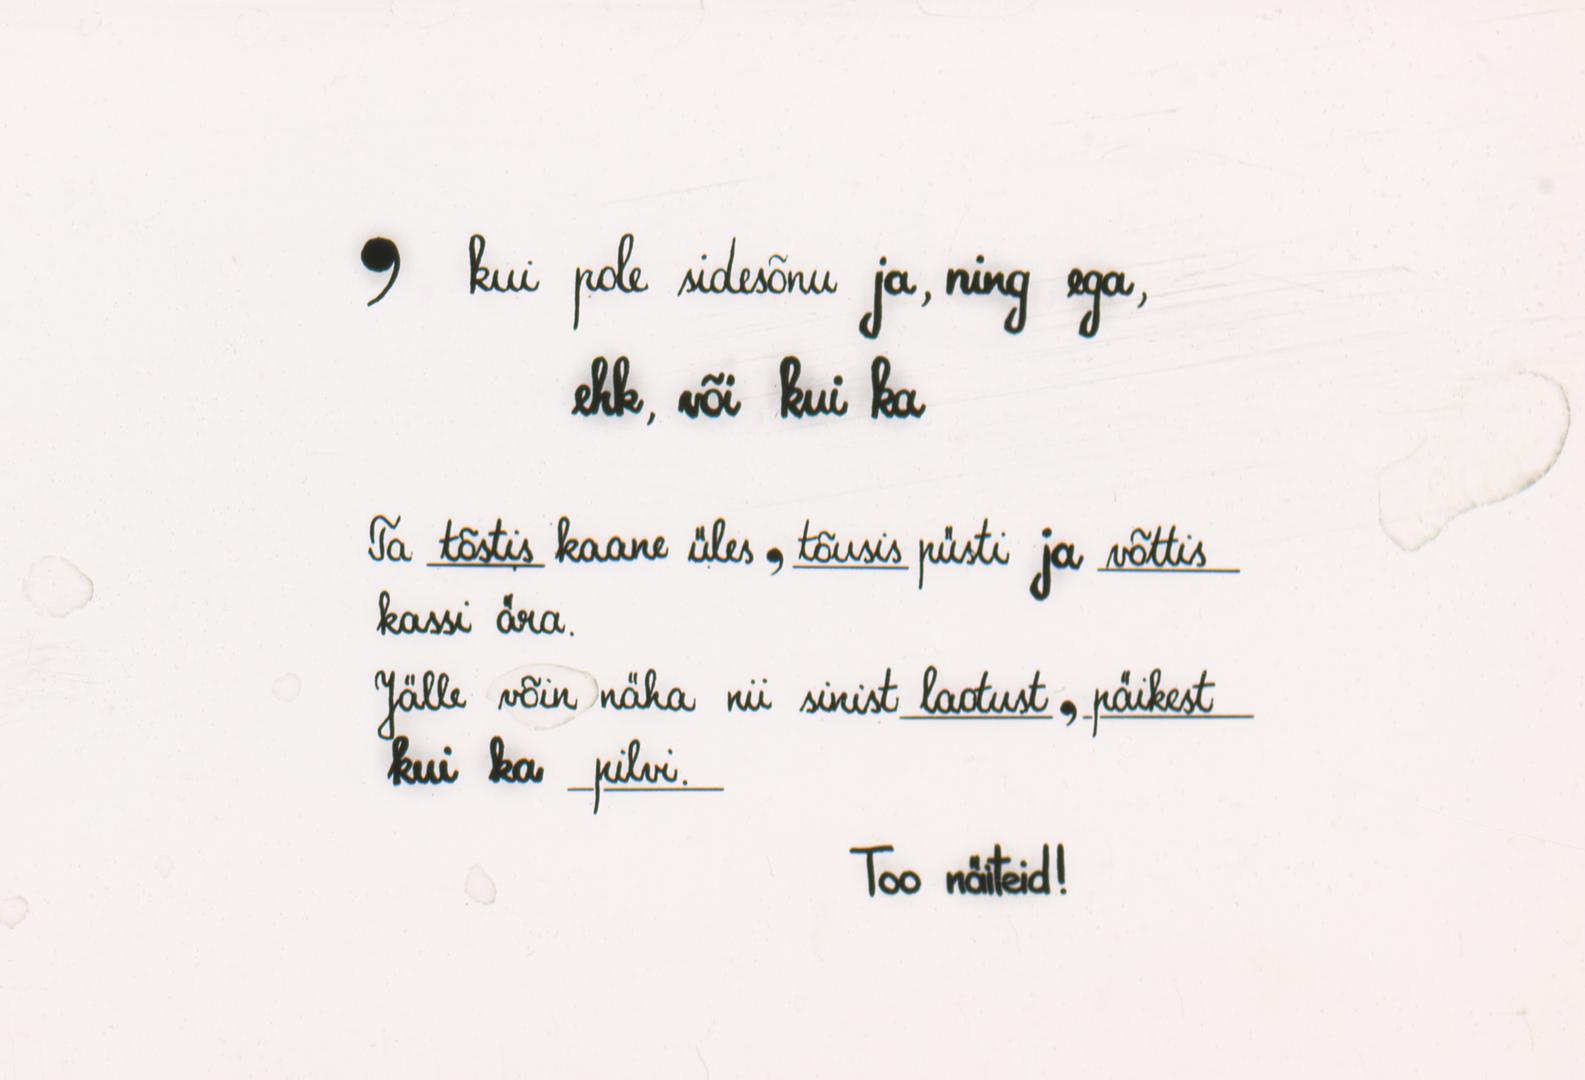 , kui pole sidesõnu ja, ning ega,
ehk, või kui ka
Ta tõstis kaane üles, tõusis püsti ja võttis
kassi ära.
Jälle võin näha nii sinist laotust, päikest
kui ka pilvi.
Too näiteid!